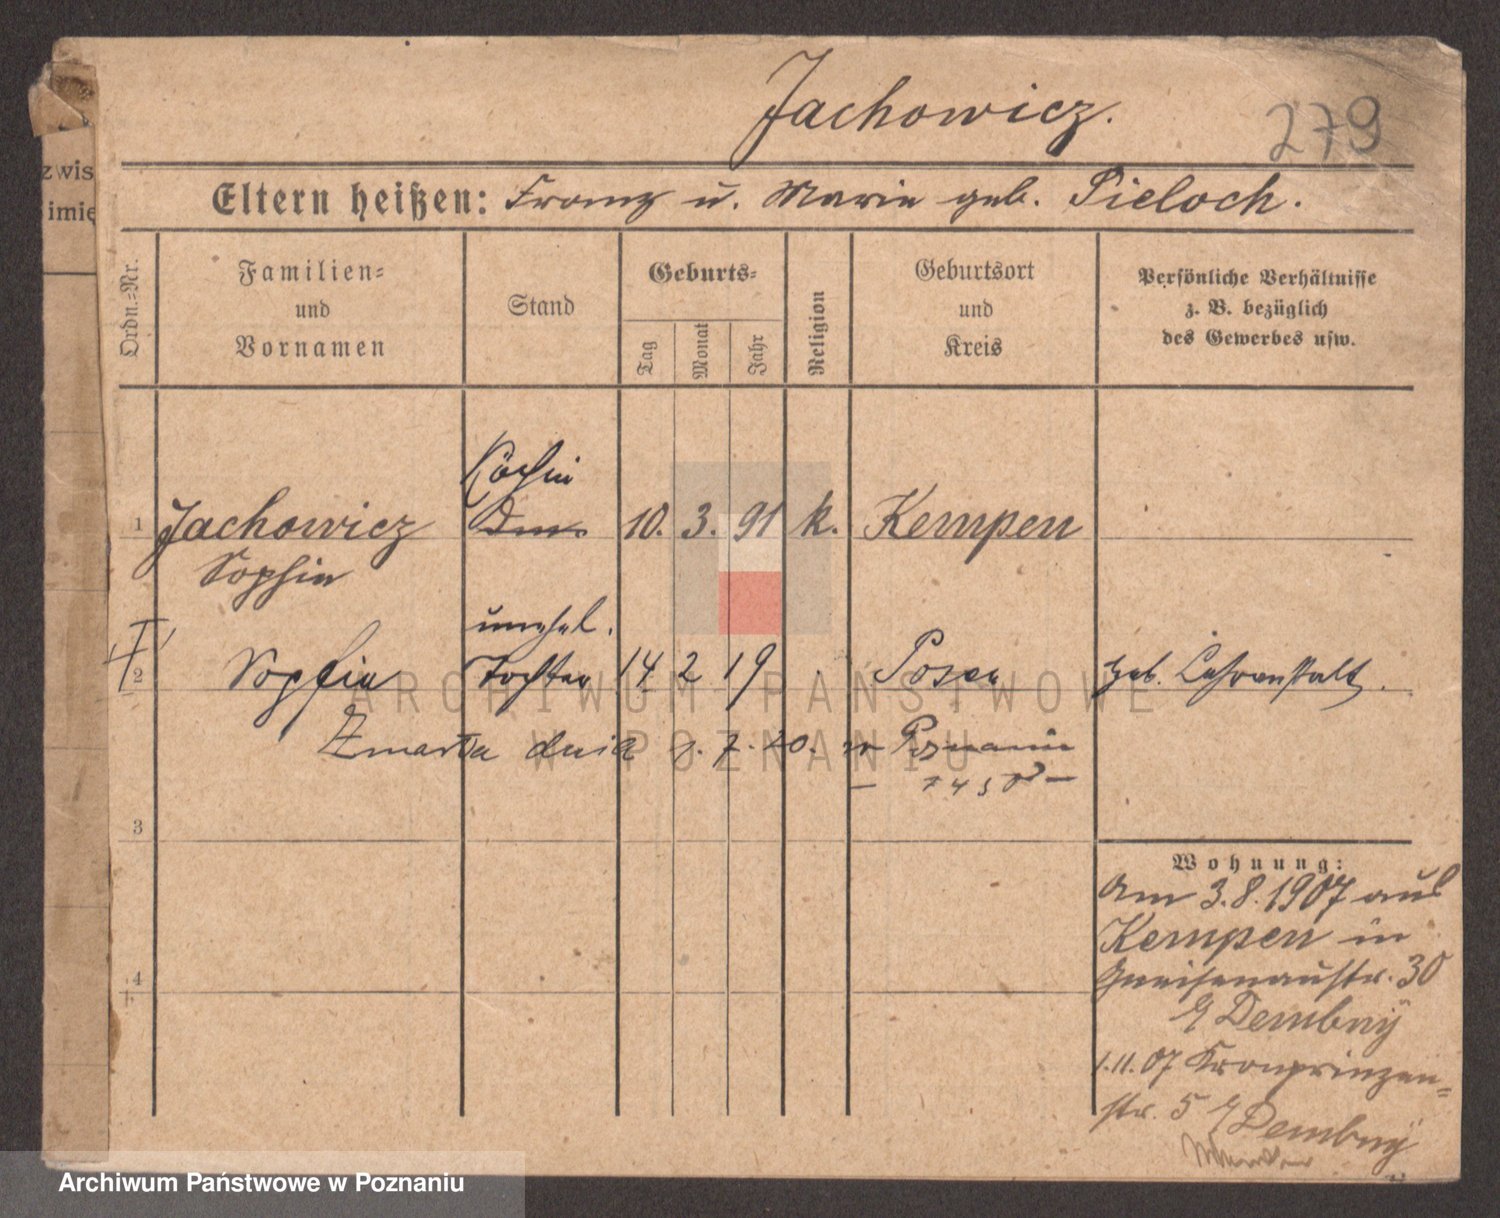 Jachowicz.
279
zwis
imię
Eltern heißen: Franz u. Marie geb. Pieloch.
Ordn.-Nr.
Familien-
und
Vornamen
Stand
Geburts-
Tag
Monat
Jahr
Religion
Geburtsort
und
Kreis
Persönliche Verhältnisse
z. B. bezüglich
des Gewerbes usw.
Köchin
1 Jachowicz 10. 3. 91 k. Kempen
Sophie
unehel.
2 Sophie Tochter 14 2 19 . Posen Geb. Lehranstalt.
Zmarła dnia 7. 20. w Poznaniu
3
Wohnung:
Am 3.8.1907 aus
Kempen in
Gneisenaustr. 30
Dembny
4
1.11.07 Kronprinzen-
str. 5 Dembny
ARCHIWUM PAŃSTWOWE
W POZNANIU
Archiwum Państwowe w Poznaniu